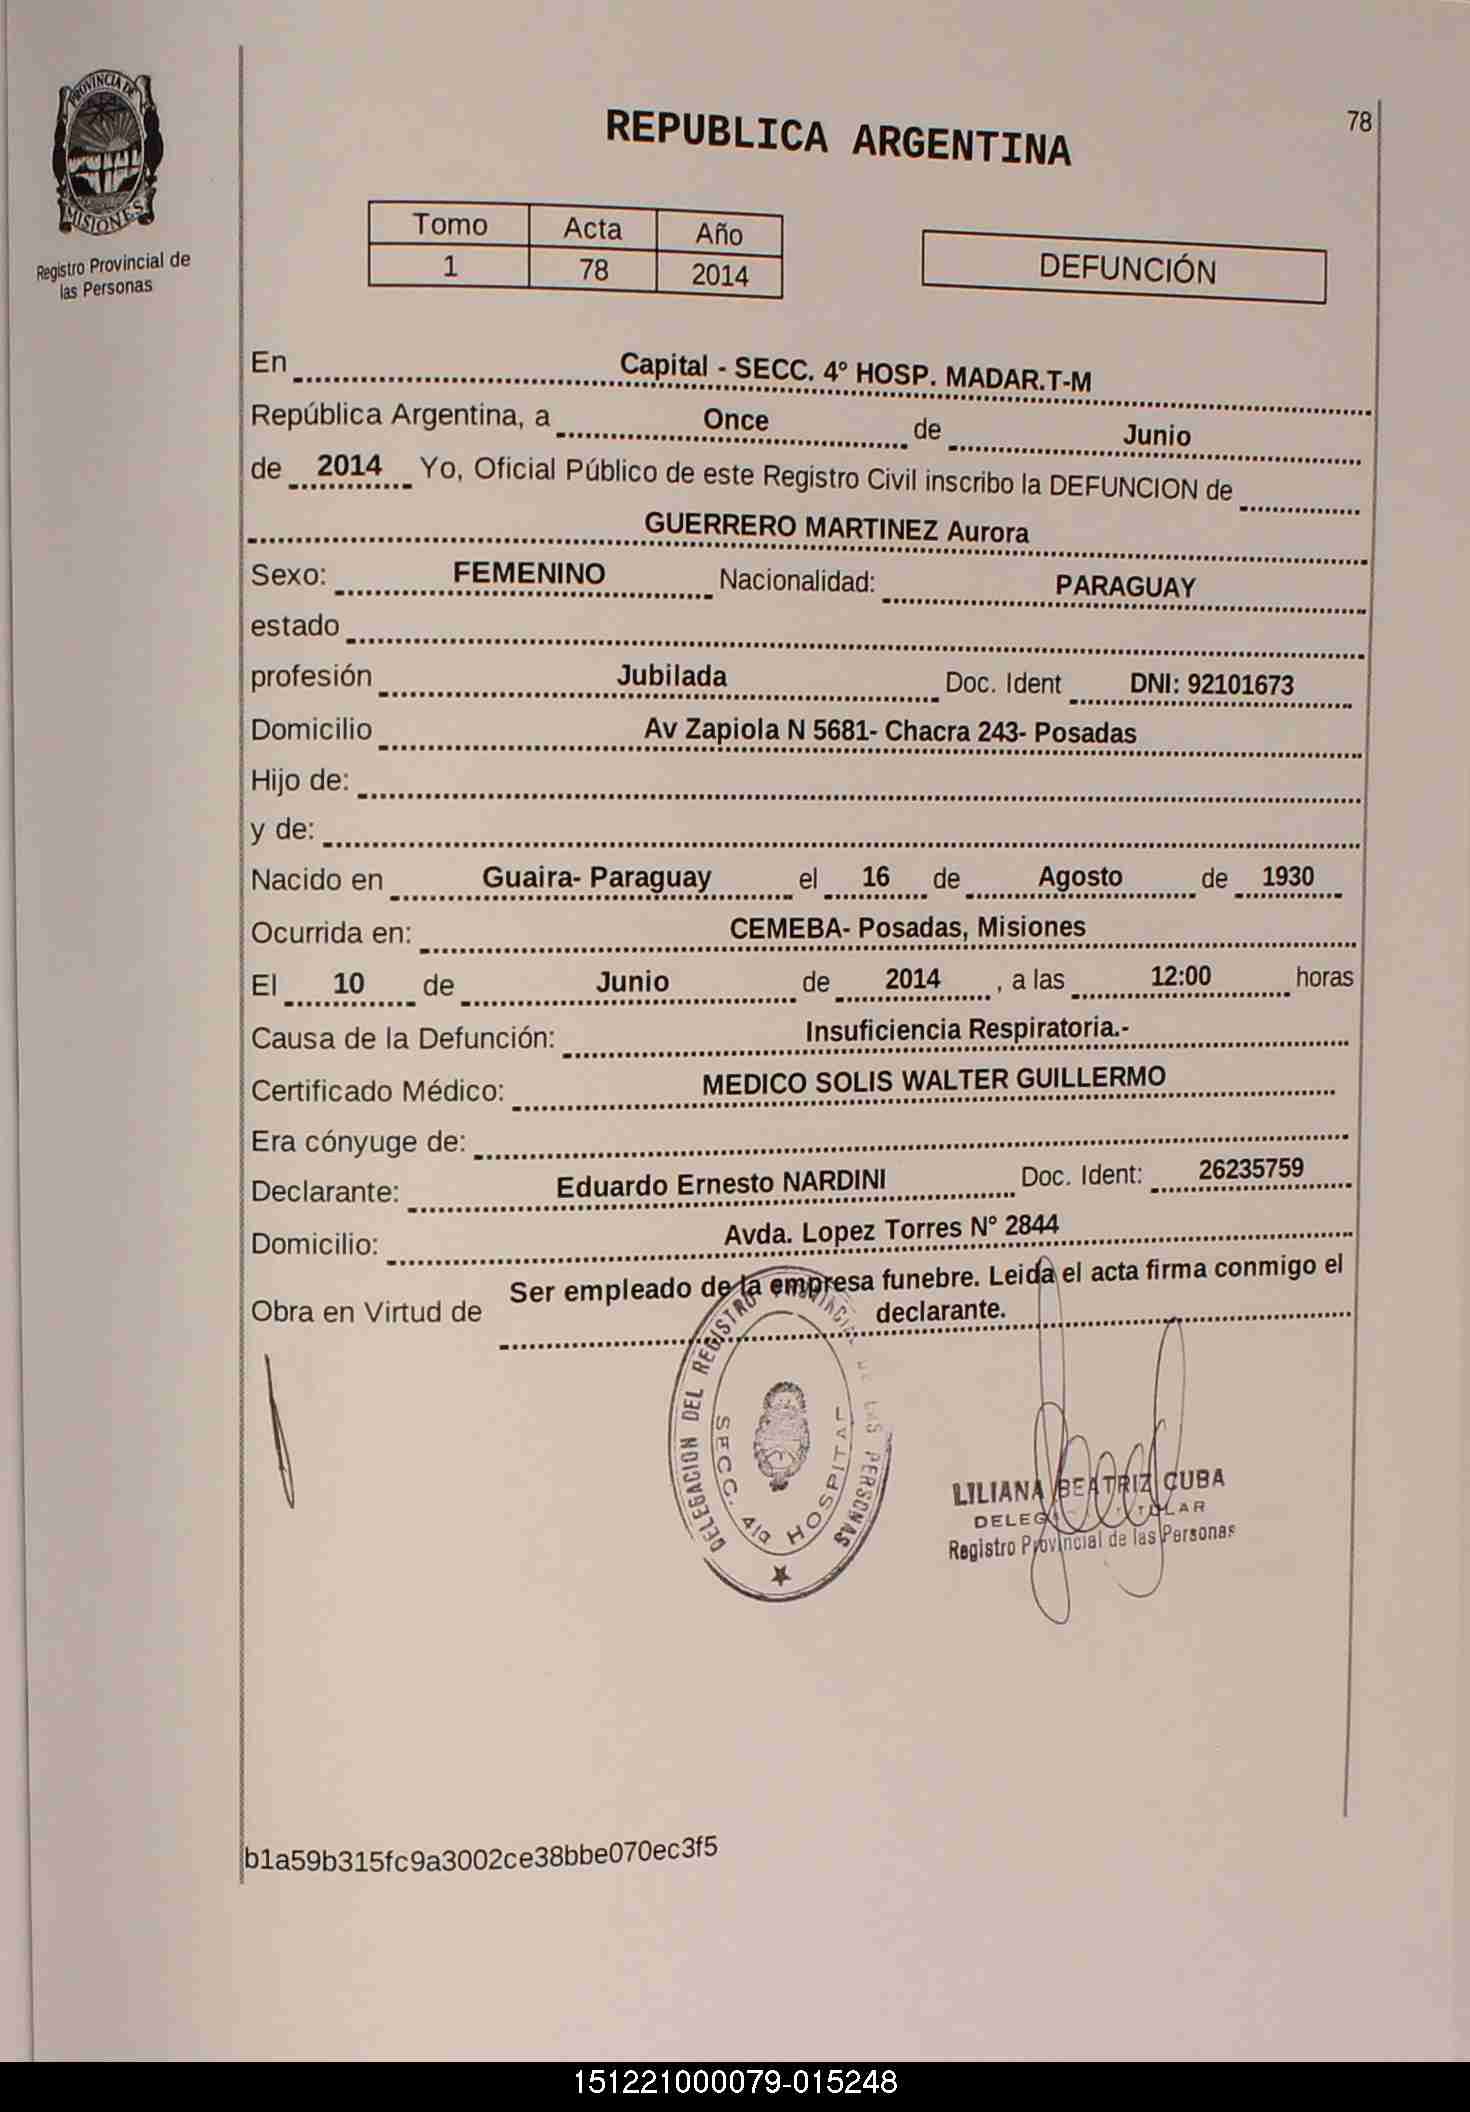 PROVINCIA DE
MISIONES
Registro Provincial de
las Personas
78
REPUBLICA ARGENTINA
Tomo Acta Año
1 78 2014
DEFUNCIÓN
En Capital - SECC. 4º HOSP. MADAR.T-M
República Argentina, a Once de Junio
de 2014 Yo, Oficial Público de este Registro Civil inscribo la DEFUNCION de
GUERRERO MARTINEZ Aurora
Sexo: FEMENINO Nacionalidad: PARAGUAY
estado
profesión Jubilada Doc. Ident DNI: 92101673
Domicilio Av Zapiola N 5681- Chacra 243- Posadas
Hijo de:
y de:
Nacido en Guaira- Paraguay el 16 de Agosto de 1930
Ocurrida en: CEMEBA- Posadas, Misiones
El 10 de Junio de 2014 , a las 12:00 horas
Causa de la Defunción: Insuficiencia Respiratoria.-
Certificado Médico: MEDICO SOLIS WALTER GUILLERMO
Era cónyuge de:
Declarante: Eduardo Ernesto NARDINI Doc. Ident: 26235759
Domicilio: Avda. Lopez Torres N° 2844
Obra en Virtud de Ser empleado de la empresa funebre. Leida el acta firma conmigo el
declarante.
DELEGACION DEL REGISTRO PROVINCIAL DE LAS PERSONAS
SECC. 4ta HOSPITAL
LILIANA BEATRIZ CUBA
Registro Provincial de las Personas
b1a59b315fc9a3002ce38bbe070ec3f5
151221000079-015248